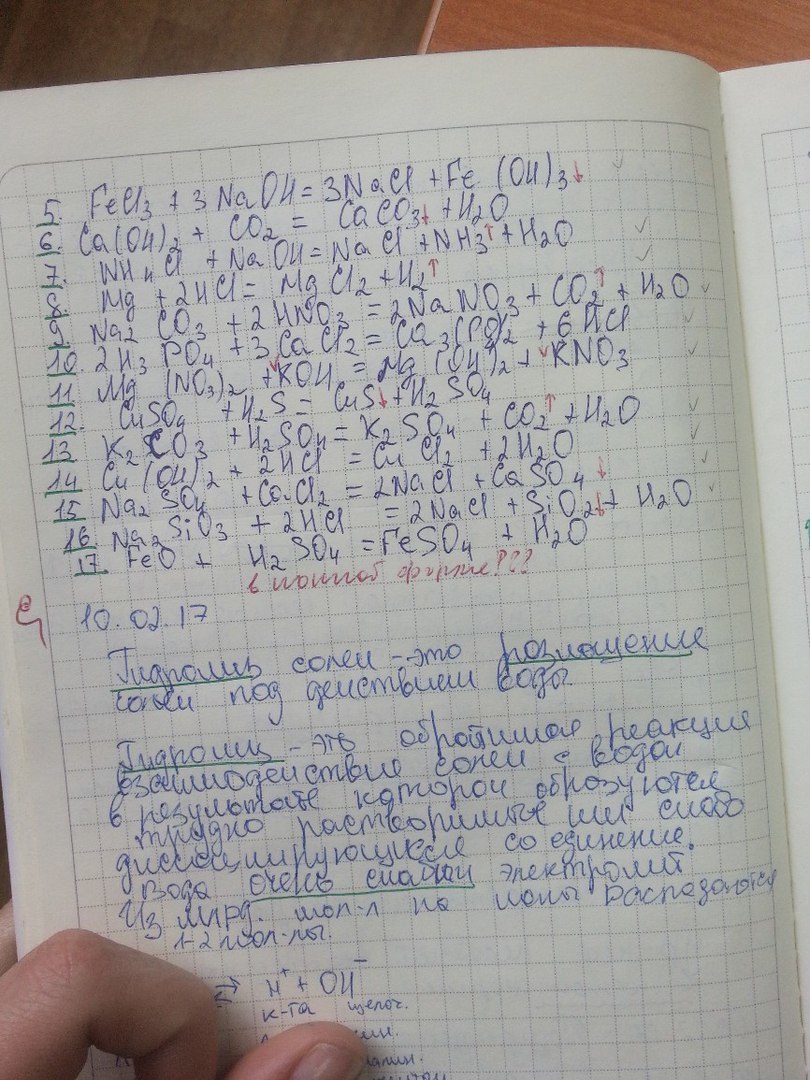 5. FeCl3 + 3 NaOH = 3NaCl + Fe (OH)3↓
6. Ca(OH)2 + CO2 = CaCO3↓ + H2O
7. NH4Cl + NaOH = NaCl + NH3↑ + H2O
8. Mg + 2HCl = MgCl2 + H2↑
9. Na2CO3 + 2HNO3 = 2NaNO3 + CO2↑ + H2O
10. 2H3PO4 + 3CaCl2 = Ca3(PO)2 + 6HCl
11. Mg(NO3)2 + KOH = Mg(OH)2 + KNO3
12. CuSO4 + H2S = CuS↓ + H2SO4
13. K2CO3 + H2SO4 = K2SO4 + CO2↑ + H2O
14. Cu(OH)2 + 2HCl = CuCl2 + 2H2O
15. Na2SO4 + CaCl2 = 2NaCl + CaSO4↓
16. Na2SiO3 + 2HCl = 2NaCl + SiO2↓ + H2O
17. FeO + H2SO4 = FeSO4 + H2O
в ионной форме???
10.02.17
Гидролиз солей - это розлощение
солей под действием воды.
Гидролиз - это обротимая реакция
взаимодействие солей с водой
в результате которой оброзуются
трудно растворимые или слабо
диссациирующиеся соединение.
Вода очень слабый электролит
Из млрд. мол-л на ионы распадаются
1-2 мол-лы.
⇄ H+ + OH-
к-та щелоч.